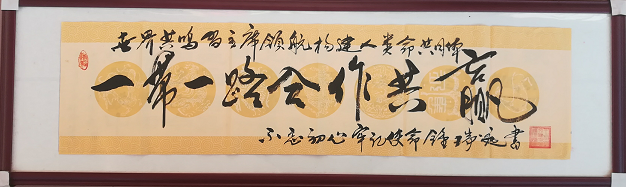 世界共鸣习主席领航构建人类命共同体
一带一路合作共赢
不忘初心牢记使命 钟瑞延书